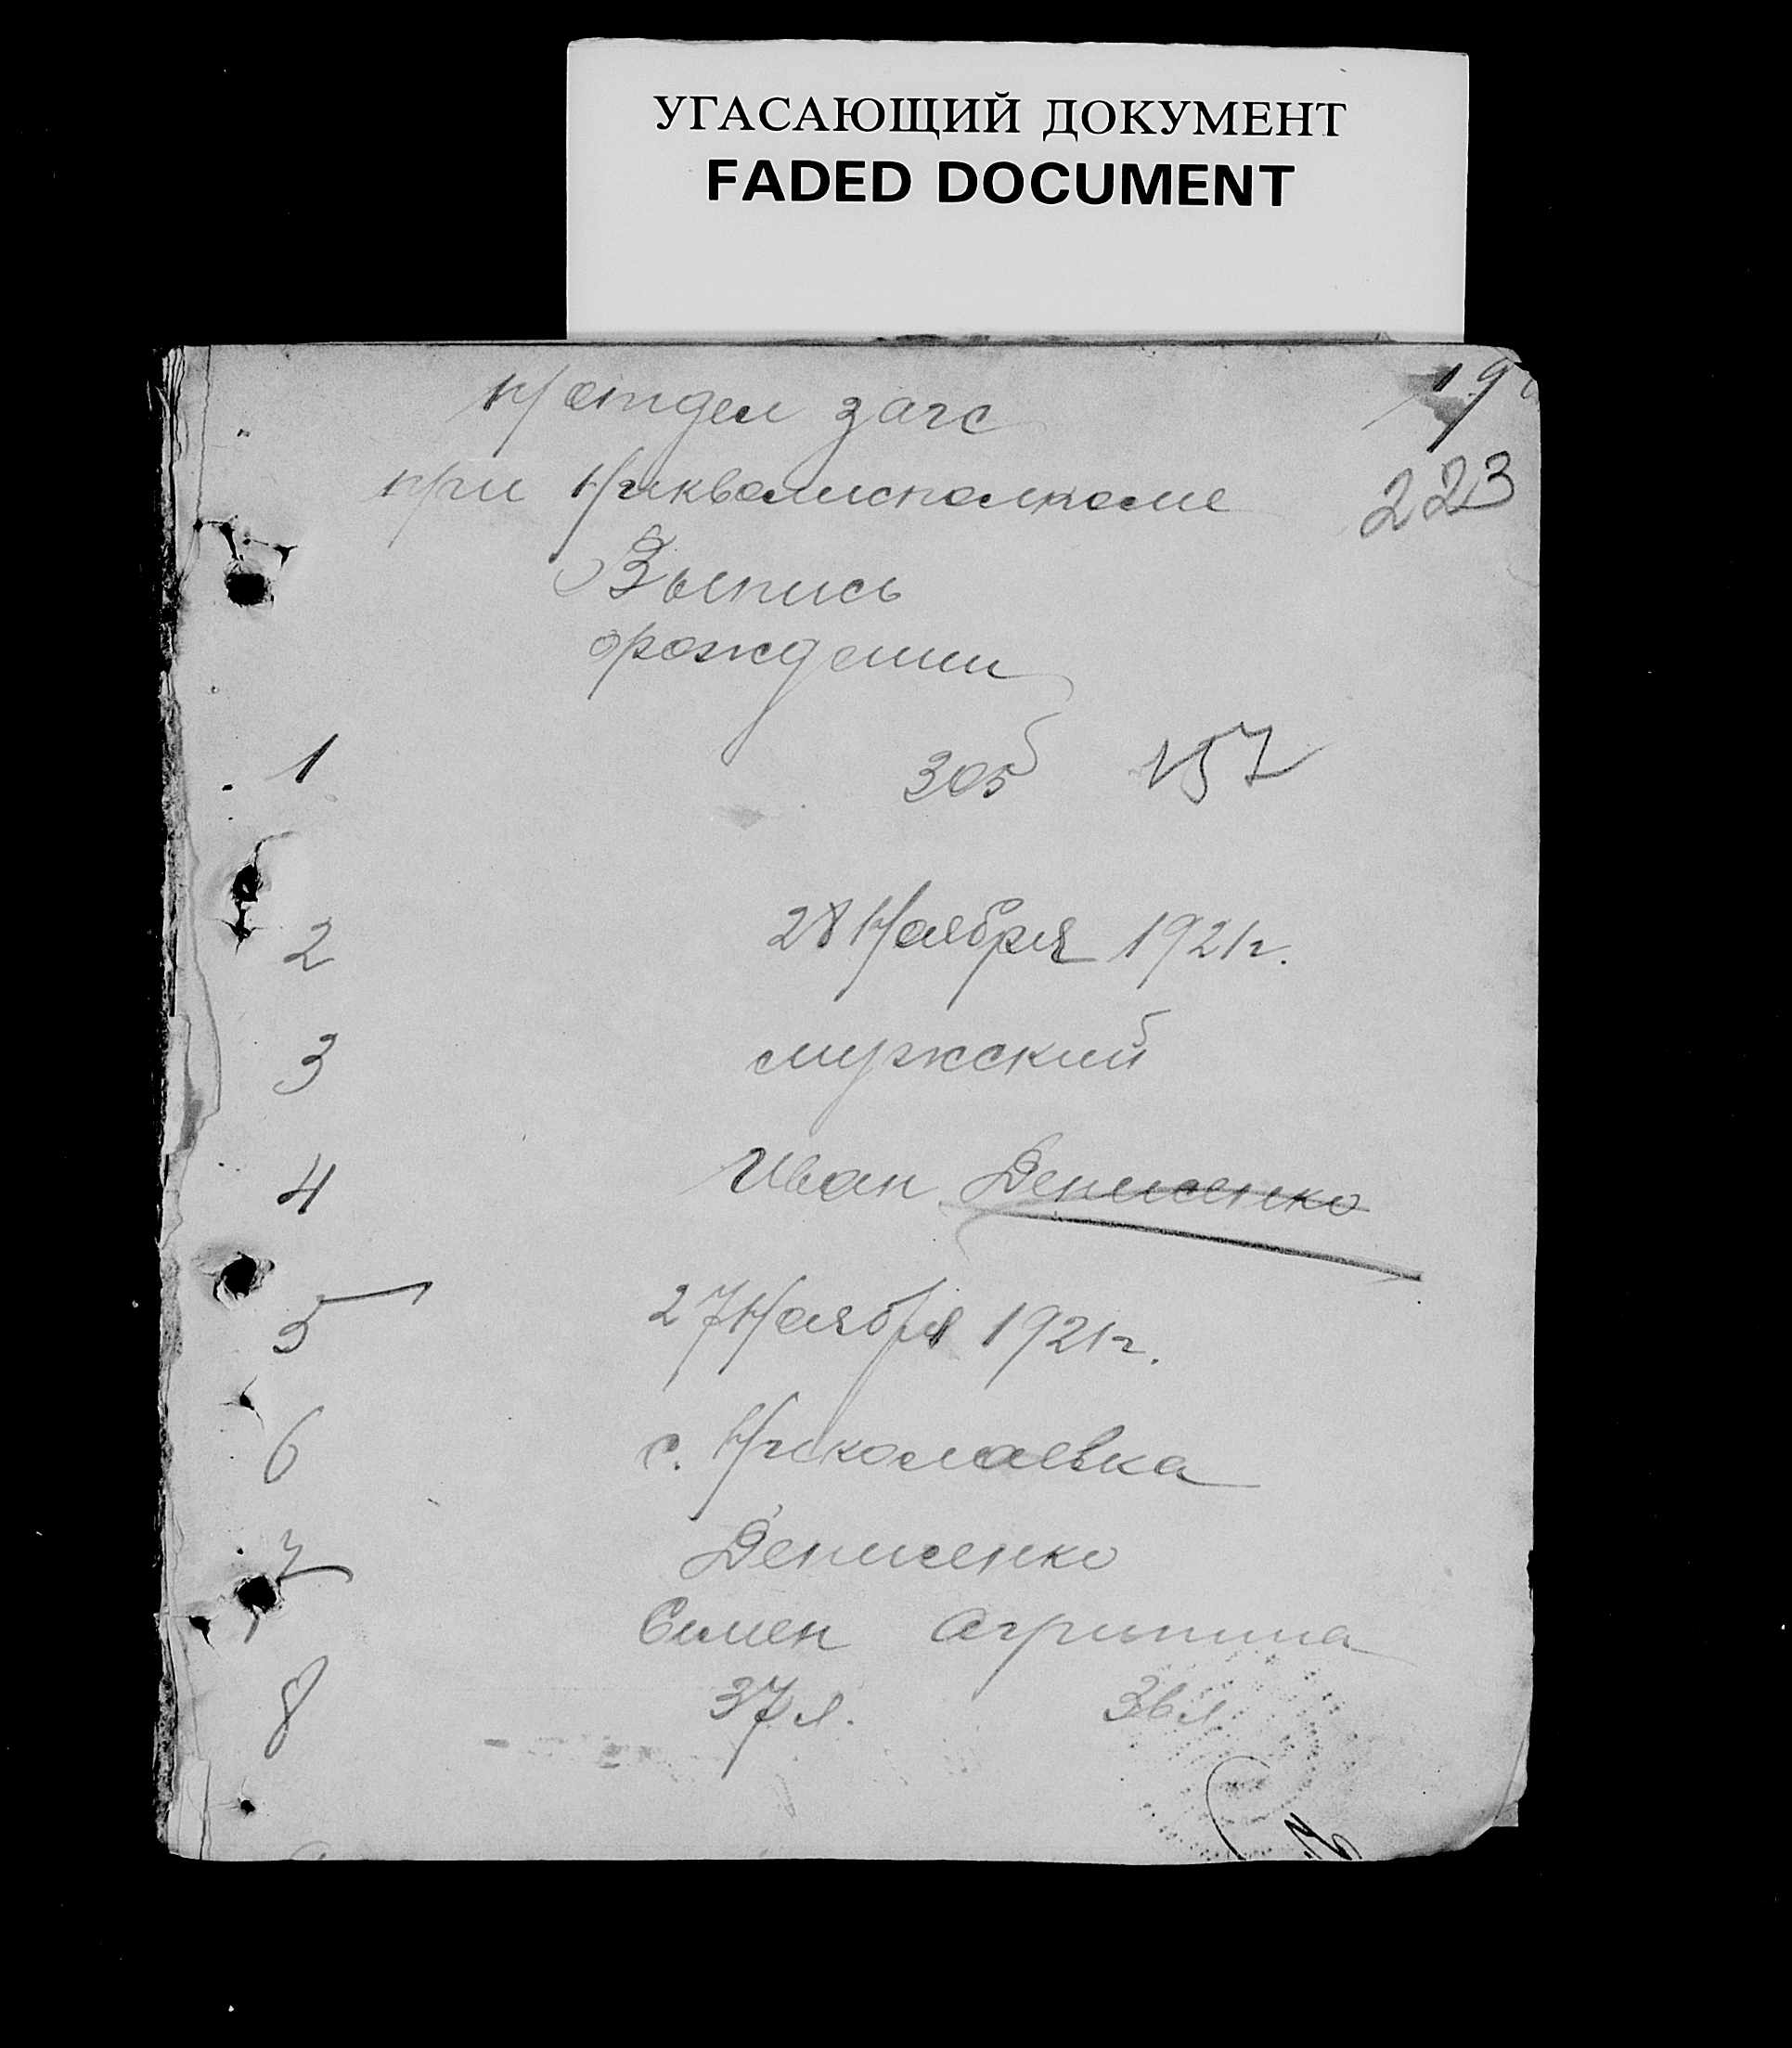 УГАСАЮЩИЙ ДОКУМЕНТ
FADED DOCUMENT
п/отдел загс
при Никволисполкоме
223
Выпись
о рождении
1 305 157
2 28 Ноября 1921 г.
3 мужский
4 Иван Денисенко
5 27 Ноября 1921 г.
6 с. Николаевка
7 Денисенко
Симен Агрипина
8 37 л. 36 л